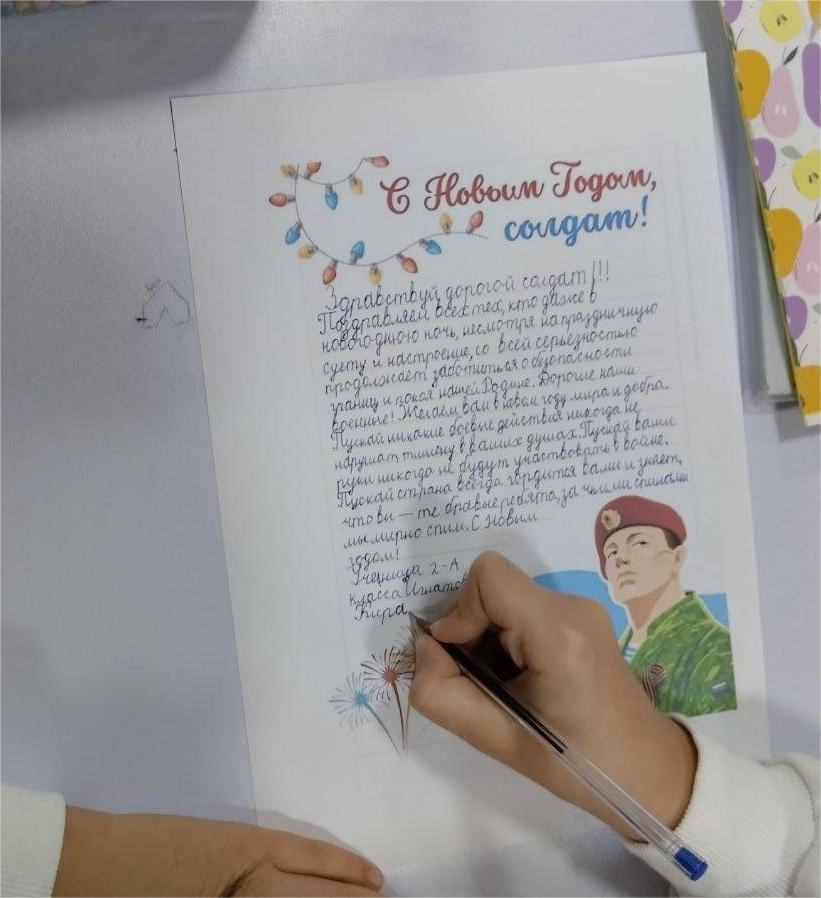 С Новым Годом,
солдат!
Здравствуй, дорогой солдат!!!
Поздравляем всех тех, кто даже в
новогоднюю ночь, несмотря на праздничную
суету и настроение, со всей серьёзностью
продолжает заботиться о безопасности
границ и покоя нашей Родине. Дорогие наши
военные! Желаем вам в новом году мира и добра.
Пускай никакие боевые действия никогда не
нарушат тишену в ваших душах. Пускай ваши
руки никогда не будут участвовать в войне.
Пускай страна всегда гордится вами и знает,
что вы — те бравые ребята, за чьими спинами
мы мирно спим. С Новым
годом!
Ученица 2-А
класса Игнатов
Кира